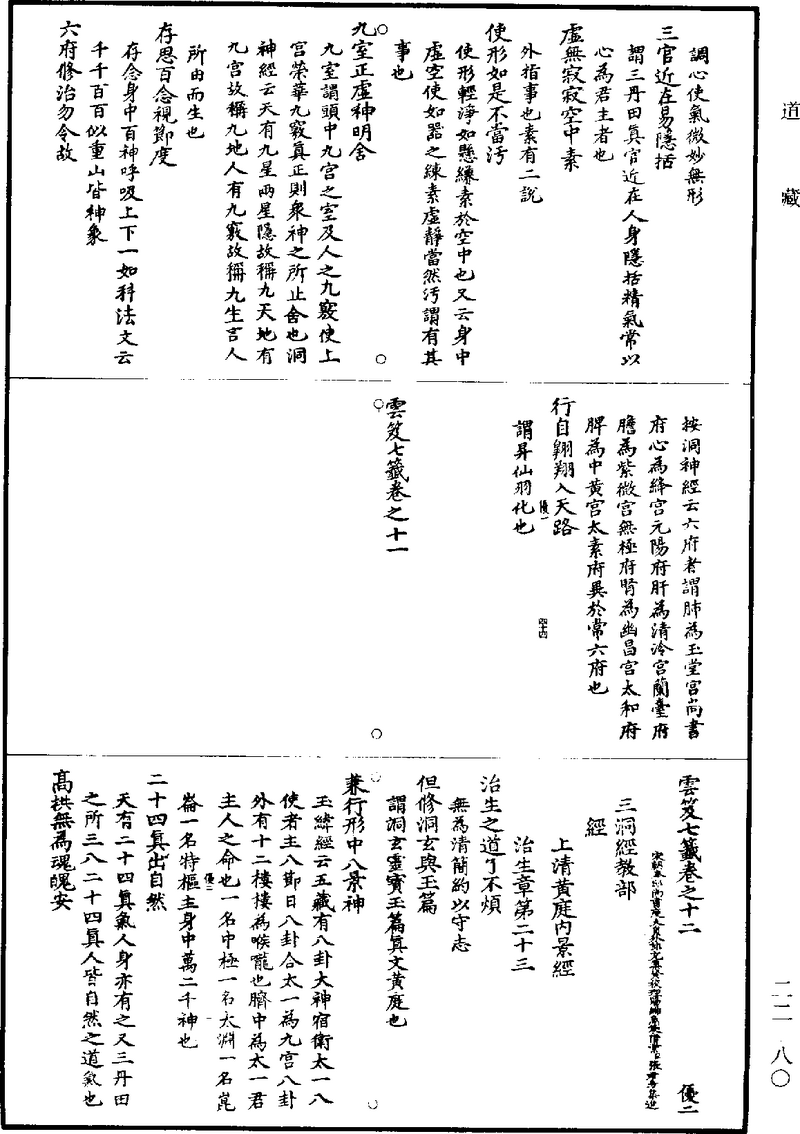 道藏
調心使氣微妙無形
三官近在易隱括
謂三丹田眞官近在人身隱括精氣常以
心為君主者也
虛無寂寂空中素
外指事也素有二說
使形如是不當汚
使形輕淨如懸練素於空中也又云身中
虛空使如器之練素虛靜當然汚謂有其
事也
九室正虛神明舍
九室謂頭中九宮之室及人之九竅使上
宮榮華九竅眞正則衆神之所止舍也洞
神經云天有九星兩星隱故稱九天地有
九宮故稱九地人有九竅故稱九生言人
所由而生也
存思百念視節度
存念身中百神呼吸上下一如科法文云
千千百百似重山皆神象
六府修治勿令故
按洞神經云六府者謂肺為玉堂宮尚書
府心為絳宮元陽府肝為清泠宮蘭臺府
膽為紫微宮無極府腎為幽昌宮太和府
脾為中黃宮太素府異於常六府也
行自翱翔入天路
謂昇仙羽化也
優一
四十四
雲笈七籤卷之十一
雲笈七籤卷之十二
優二
三洞經教部
經
上清黃庭內景經
治生章第二十三
治生之道了不煩
無為清簡約以守志
但修洞玄與玉篇
謂洞玄靈寶玉篇眞文黃庭也
兼行形中八景神
玉緯經云五藏有八卦大神宿衛太一八
使者主八節日八卦合太一為九宮八卦
外有十二樓樓為喉嚨也臍中為太一君
主人之命也一名中極一名太淵一名崑
崙一名特樞主身中萬二千神也
優二
一
二十四眞出自然
天有二十四眞氣人身亦有之又三丹田
之所三八二十四眞人皆自然之道氣也
高拱無為魂魄安
二二 八〇